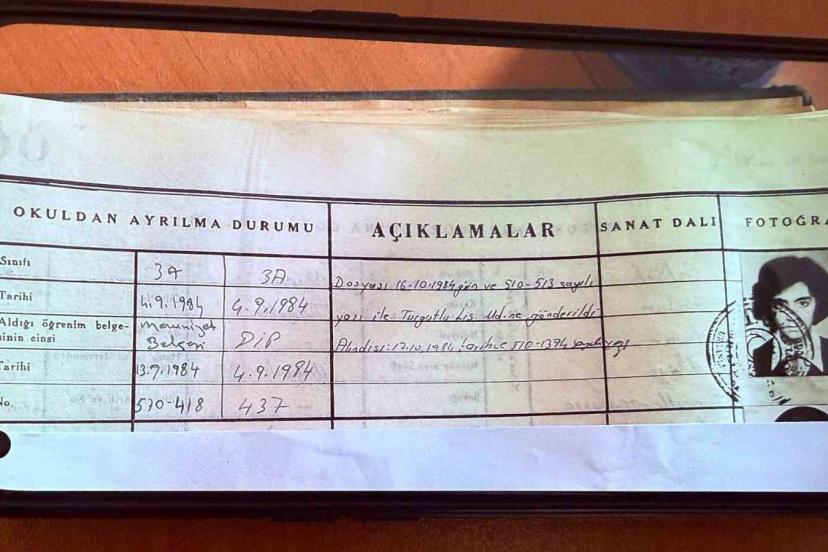 OKULDAN AYRILMA DURUMU AÇIKLAMALAR SANAT DALI FOTOĞRA
Sınıfı 3A 3A Dosyası 16.10.1984 gün ve 510-513 sayılı
Tarihi 4.9.1984 4.9.1984 yazı ile Turgutlu Lis. Md.ne gönderildi
Aldığı öğrenim belge-
sinin cinsi Mezuniyet Belgesi DİP Alındısı: 17.10.1984 tarih ve 510-1394 sayılı yazı
Tarihi 13.9.1984 4.9.1984
No. 570-418 437